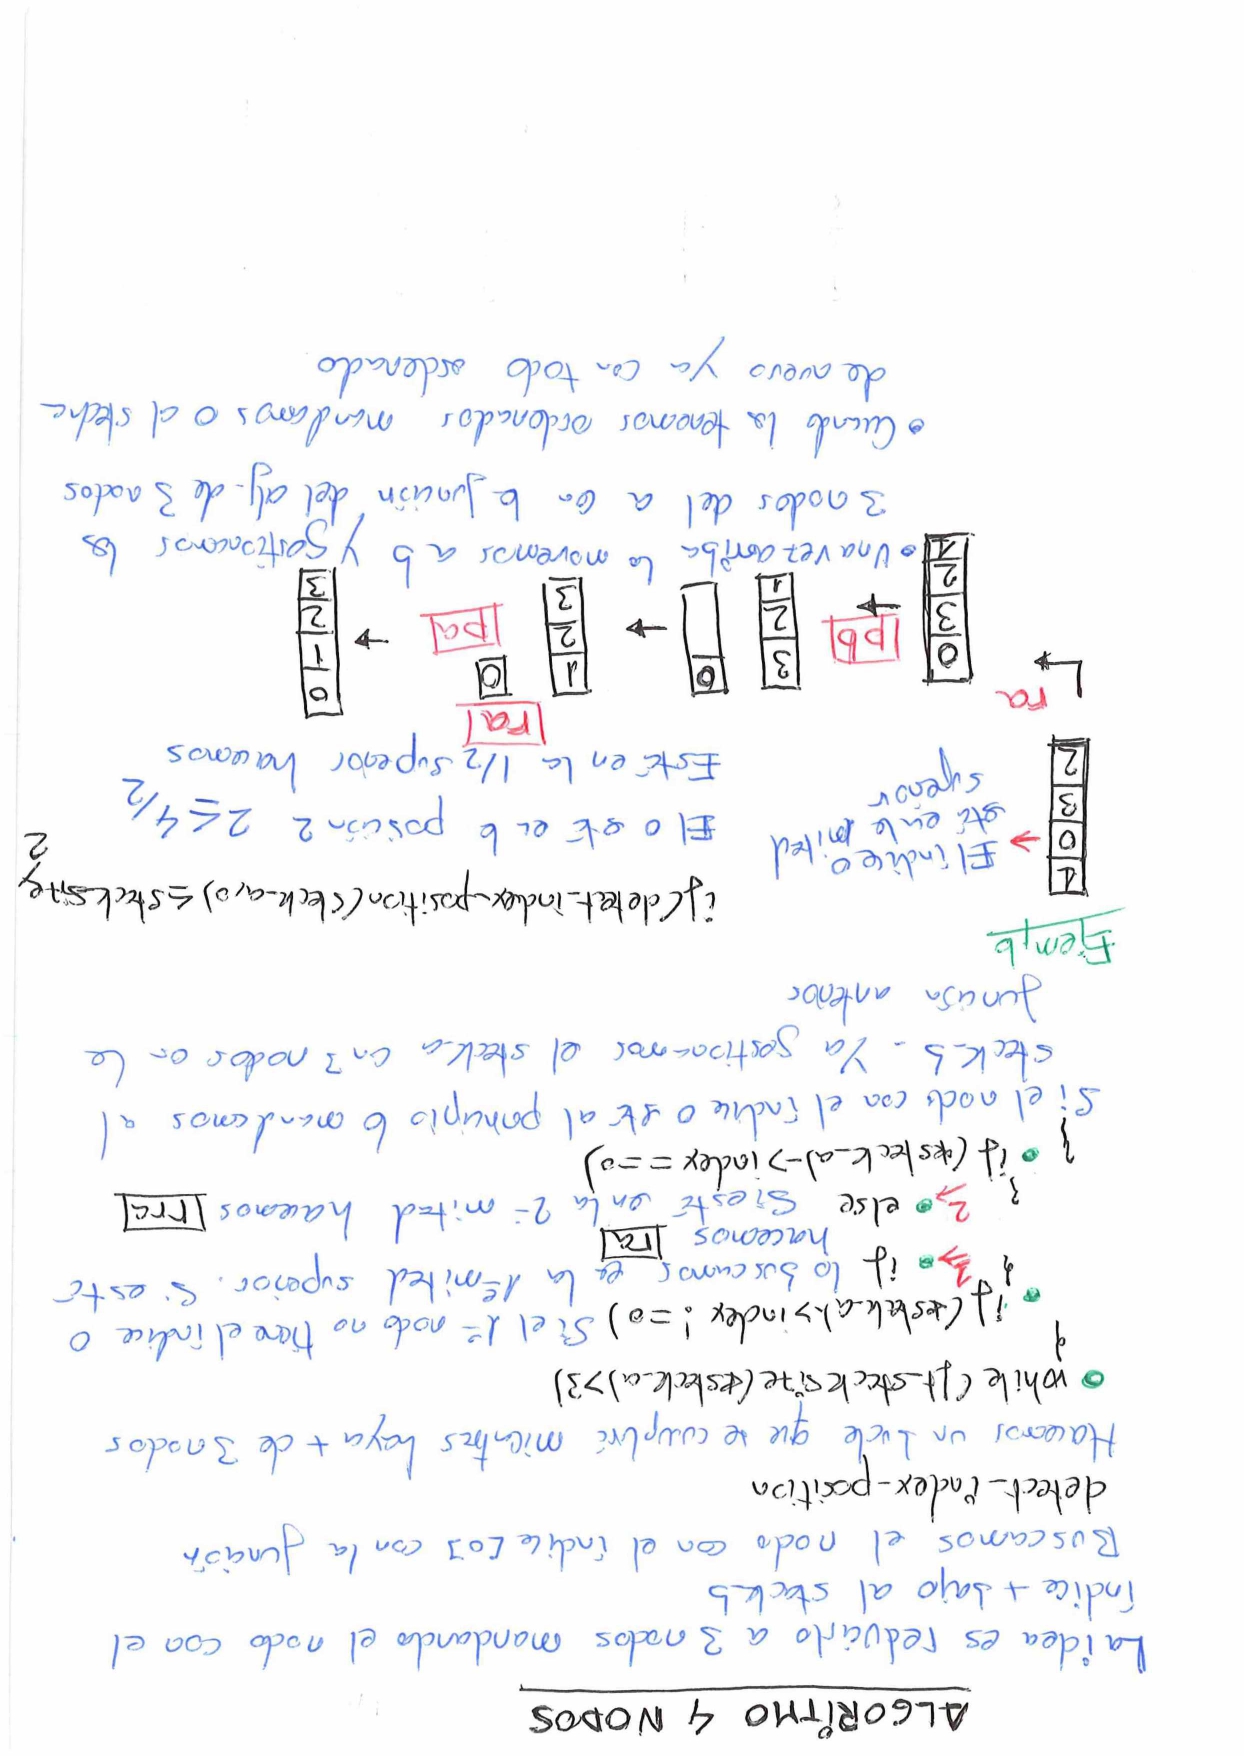 ALGORITMO 4 NODOS
La idea es reducirlo a 3 nodos mandando el nodo con el
índice + bajo al stack_b
Buscamos el nodo con el índice [0] con la función
detect_index_position
Hacemos un bucle que se cumplirá mientras haya + de 3 nodos
while (ft_stacksize(*stack_a)>3)
{
if (*stack_a)->index != 0) Si el 1º nodo no tiene el índice 0
{ 1 if lo buscamos en la 1ª mitad superior. Si está
hacemos ra
2 else Si está en la 2ª mitad hacemos rra
}
} if (*stack_a)->index == 0)
Si el nodo con el índice 0 está al principio lo mandamos al
stack_b. Ya gestionamos el stack_a con 3 nodos con la
función anterior
Ejemplo
1
0
3
2
El índice 0
está en la mitad
superior
if (detect_index_position(stack_a,0) ≤ stacksize/2
El 0 está en la posición 2 2 ≤ 4/2
Está en la 1/2 superior hacemos
ra
ra
0
3
2
1
pb
3
2
1
0
1
2
3
0
pa
0
1
2
3
Una vez arriba lo movemos a b y gestionamos los
3 nodos del a con la función del alg. de 3 nodos
Cuando los tenemos ordenados mandamos 0 al stack a
de nuevo ya con todo ordenado